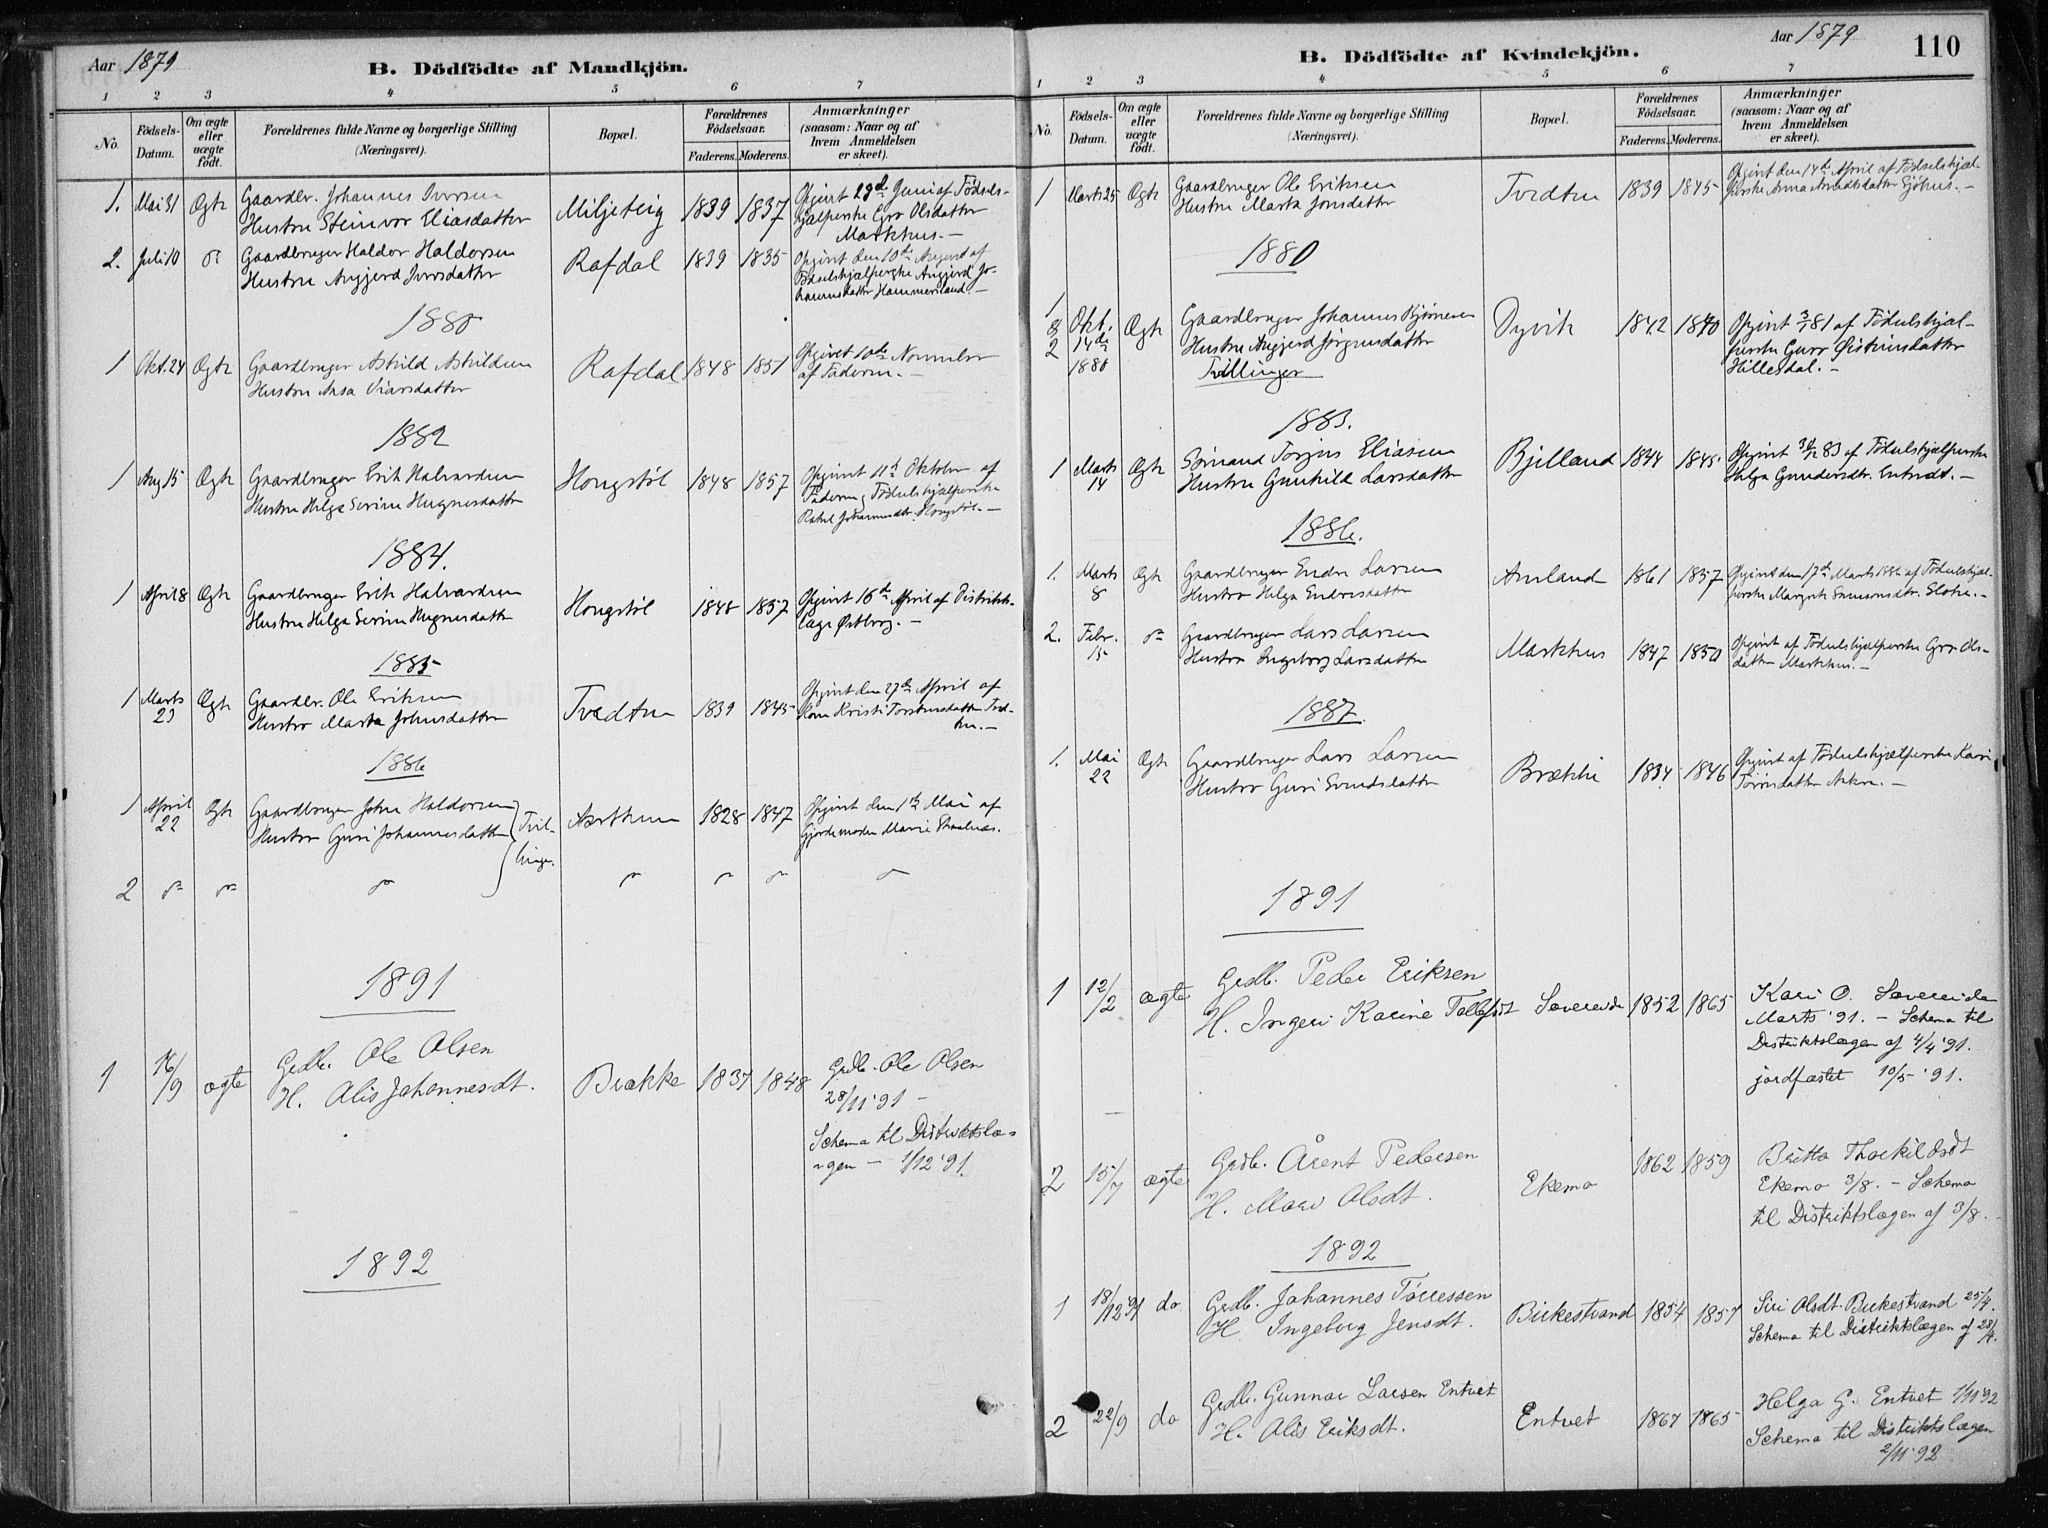 Aar 1879
B. Dödfödte af Mandkjön.
1 2 3 4 5 6 7
No. Födsels-Datum. Om ægte eller uægte födt. Forældrenes fulde Navne og borgerlige Stilling (Næringsvei). Bopæl. Forældrenes Födselsaar. Faderens. Moderens. Anmærkninger (saasom: Naar og af hvem Anmeldelsen er skeet).
1. Mai 31 Ægte Gaardbr. Johannes Iversen Miljeteig 1839 1837 Opgivet Juni af Fødsels-
Hustru Steinvor Eliasdatter hjælperske Gro Olsdatter
Markhus.—
2. Juli 10 Gaardbruger Haldor Haldorsen Rafdal 1839 1835 Opgivet den 10de August af
Hustru Angjerd Iversdatter Fødselshjælperske Angjerd Jo-
hannesdatter Hammersland.—
1880
1 Okt. 24 Ægte Gaardbruger Askild Askildsen Rafdal 1848 1851 Opgivet 10de November
Hustru Aasa af Faderen.—
1882
1 Aug 15 Ægte Gaardbruger Erik Halvardsen Hongstøl 1848 1857 Opgivet 11te Oktober af
Hustru Helga Serine Hugnesdatter Faderen, Fødselshjælperske
Rakel Johannesdtr. Hongstøl.—
1884.
1 April 8 Ægte Gaardbruger Erik Halvardsen Hongstøl 1848 1857 Opgivet 16de April af Distrikts-
Hustru Helga Serine Hugnesdatter læge Østberg.—
1885
1 Marts 23 Ægte Gaardbr. Ole Eriksen Tvedten 1839 1845 Opgivet den 27de April af
Hustru Marta Johnsdatter Kone Kristi Torstensdatter Tved-
ten.—
1886
1 April 22 Ægte Gaardbruger John Haldorsen Tvil- Aarthun 1828 1847 Opgivet den 1ste Mai af
Hustru Guri Johannesdatter linger. Gjordemoder Marie
2
1891
1 16/9 ægte Grdb. Ole Olsen Brække 1837 1848 Grdb. Ole Olsen
H. Alis Johannesdt. 28/11 '91 —
Schema til Distriktslæ-
gen — 1/12 '91.
1892
Aar 1879
110
B. Dödfödte af Kvindekjön.
1 2 3 4 5 6 7
No. Födsels-Datum. Om ægte eller uægte födt. Forældrenes fulde Navne og borgerlige Stilling (Næringsvei). Bopæl. Forældrenes Födselsaar. Faderens. Moderens. Anmærkninger (saasom: Naar og af hvem Anmeldelsen er skeet).
1 Marts 25 Ægte Gaardbruger Ole Eriksen Tvedten 1839 1845 Opgivet den 14de April af Fødselshjæl-
Hustru Marta Jonsdatter perske Anna Arvedsdatter Sjøhus.—
1880
1 & 2 Okt. 14de 1880 Ægte Gaardbruger Johannes Dyvik 1842 1840 Opgivet 3/1 81 af Fødselshjæl-
Hustru Angjerd Jørgensdatter perske Guro Øistensdatter
Tvillinger Hillesdal.—
1883.
1 Marts 14 Ægte Sømand Torjus Eliasen Bjelland 1844 1845. Opgivet 83 af Fødselshjælperske
Hustru Gunhild Larsdatter Helga Gundersdtr. Entvedt.—
1886.
1. Marts 8 Ægte Gaardbruger Endre Larsen Amland 1861 1857 Opgivet den 17de Marts 1886 af Fødselshjæl-
Hustru Helga Endresdatter perske Margrete Simonsdtr. Slotte.—
2. Febr. 15 Gaardbruger Lars Larsen Markhus 1847 1850 Opgivet af Fødselshjælperske Gro Ols-
Hustru Ingeborg Larsdatter datter Markhus.—
1887.
1. Mai 22 Ægte Gaardbruger Lars Larsen Brække 1834 1846 Opgivet af Fødselshjælperske Kari
Hustru Guri datter
1891
1 12/2 ægte Grdb. Peder Eriksen Severeide 1852 1865 Kari O. Severeide
H. Ingeri Karine Tollefsdt Marts '91. — Schema til
Distriktslægen af 4/4 '91.
jordfæstet 10/5 '91.
2 15/7 ægte Grdb. Årent Pedersen Ekemo 1862 1859 Britta Thorkildsdt
H. Mari Olsdt. Ekemo 3/8. — Schema
til Distriktslægen af 3/8.
1892
1 18/12 '91 do Grdb. Johannes Tørressen Birkestrand 1854 1857 Siri Olsdt. Birkestrand 25/4.
H. Ingeborg Jensdt. Schema til Distriktslægen af 28/4.
2 22/9 do Grdb. Gunnar Larsen Entvet Entvet 1867 1865 Helga G. Entvet 1/11 '92
H. Alis Eriksdt. Schema til Distriktslægen
2/11 '92